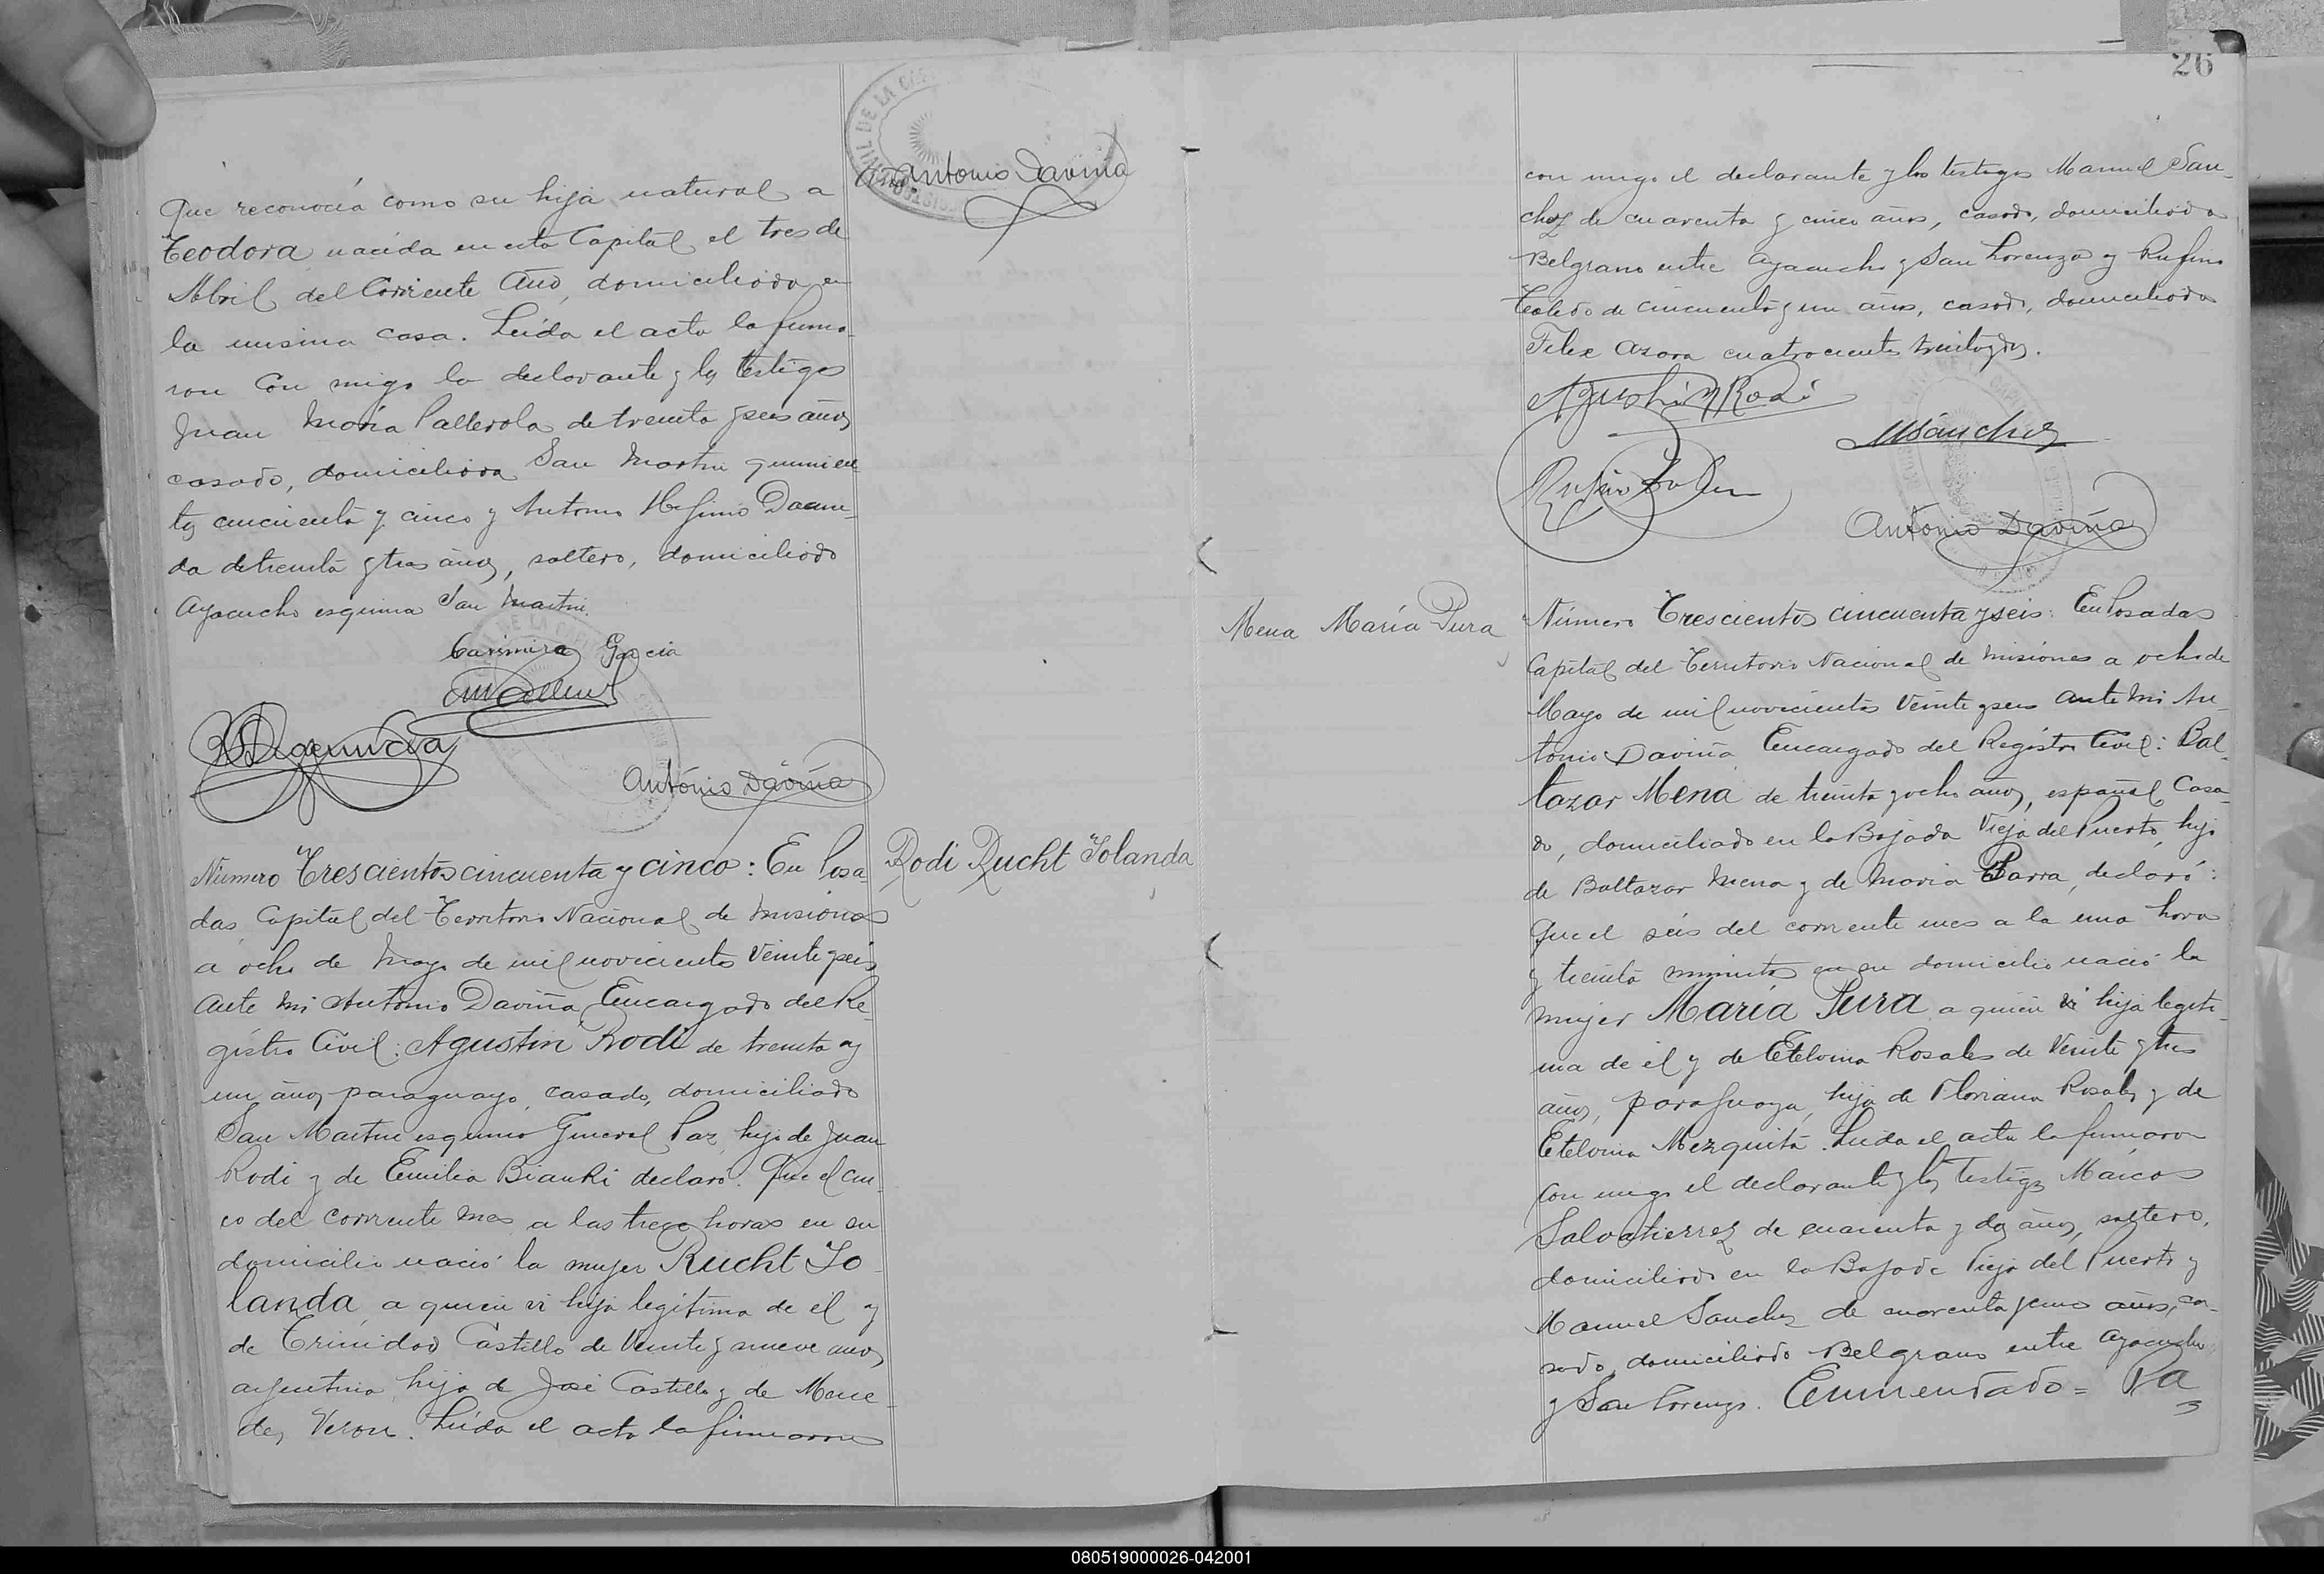 Antonio Daviña
Que reconocía como su hija natural a
Teodora nacida en esta Capital el tres de
Abril del Corriente Año, domiciliada en
la misma casa. Leida el acta la firma-
ron con migo la declarante y los testigos
Juan María Pallerola de treinta y seis años
casado, domiciliado San Martin quinien-
tos cincuenta y cinco y Antonio Higinio
da de treinta y tres años, soltero, domiciliado
Ayacucho esquina San Martin.
Casimira Garcia
Antonio Daviña
Rodi Rucht Iolanda
Número Trescientos cincuenta y cinco: En Posa-
das, Capital del Territorio Nacional de Misiones
a ocho de Mayo de mil novecientos veinte y seis
ante mi Antonio Daviña, Encargado del Re-
gistro Civil: Agustin Rodi de treinta y
un años, paraguayo, casado, domiciliado
San Martin esquina General Paz, hijo de Juan
Rodi y de Emilia Bianki declaró: Que el cin-
co del corriente mes a las trece horas en su
domicilio nació la mujer Rucht Io-
landa, a quien vi hija legítima de él y
de Trinidad Castillo de veinte y nueve años,
argentina, hija de José Castillo y de Merce-
des Veron. Leida el acta la firmaron
26
con migo el declarante y los testigos Manuel San-
chez de cuarenta y cinco años, casado, domiciliado
Belgrano entre Ayacucho y San Lorenzo y Rufino
Toledo de cincuenta y un años, casado, domiciliado
Felix Azara cuatrocientos treinta y dos.
Agustin Rodi
MSanchez
Antonio Daviña
Mena María Pura
Número Trescientos cincuenta y seis: En Posadas
Capital del Territorio Nacional de Misiones a ocho de
Mayo de mil novecientos veinte y seis ante mi An-
tonio Daviña Encargado del Registro Civil: Bal-
tazar Mena de treinta y ocho años, español, Casa-
do, domiciliado en la Bajada Vieja del Puerto, hijo
de Baltazar Mena y de Maria Parra, declaró:
Que el seis del corriente mes a la una hora
y treinta minutos en su domicilio nació la
mujer María Pura, a quien vi hija legíti-
ma de él y de Etelvina Rosales de veinte y tres
años, paraguaya, hija de Floriana Rosales y de
Etelvina Mezquita. Leida el acta la firmaron
con migo el declarante y los testigos Márcos
Salvatierrez de cuarenta y dos años, soltero,
domiciliado en la Bajada Vieja del Puerto y
Manuel Sanchez de cuarenta y cinco años, ca-
sado, domiciliado Belgrano entre Ayacucho
y San Lorenzo. Enmendado = Pa
080519000026-042001